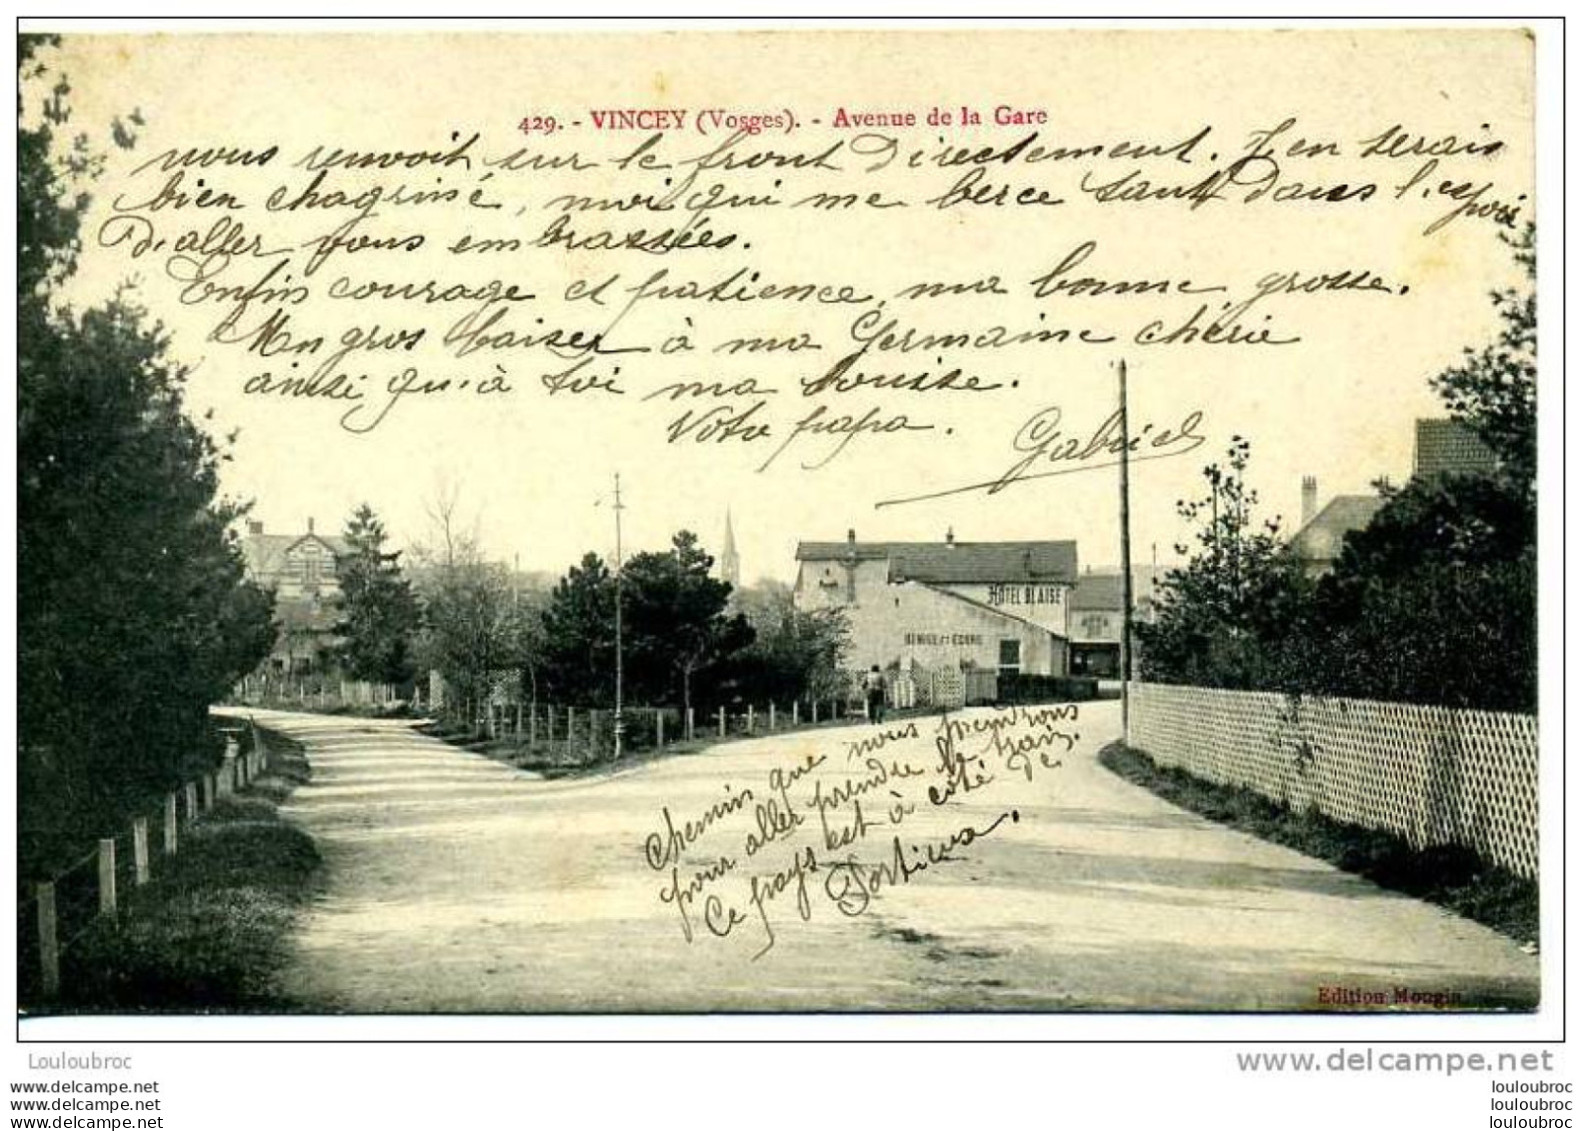 429. - VINCEY (Vosges). - Avenue de la Gare
nous renvoit sur le front Directement. J'en serais
bien chagriné, moi qui me berce tant Dans l'espoir
D'aller vous embrassées.
Enfin courage et patience, ma bonne grosse.
Mon gros baiser à ma Germaine chérie
ainsi qu'à toi ma Louise.
Voto papa. Gabriel
HÔTEL BLAISE
Chemin que nous prendrons
pour aller prendre le train.
Ce pays est à coté de
Portieux.
Edition Mougin
Louloubroc
www.delcampe.net
www.delcampe.net
www.delcampe.net
www.delcampe.net
louloubroc
louloubroc
louloubroc